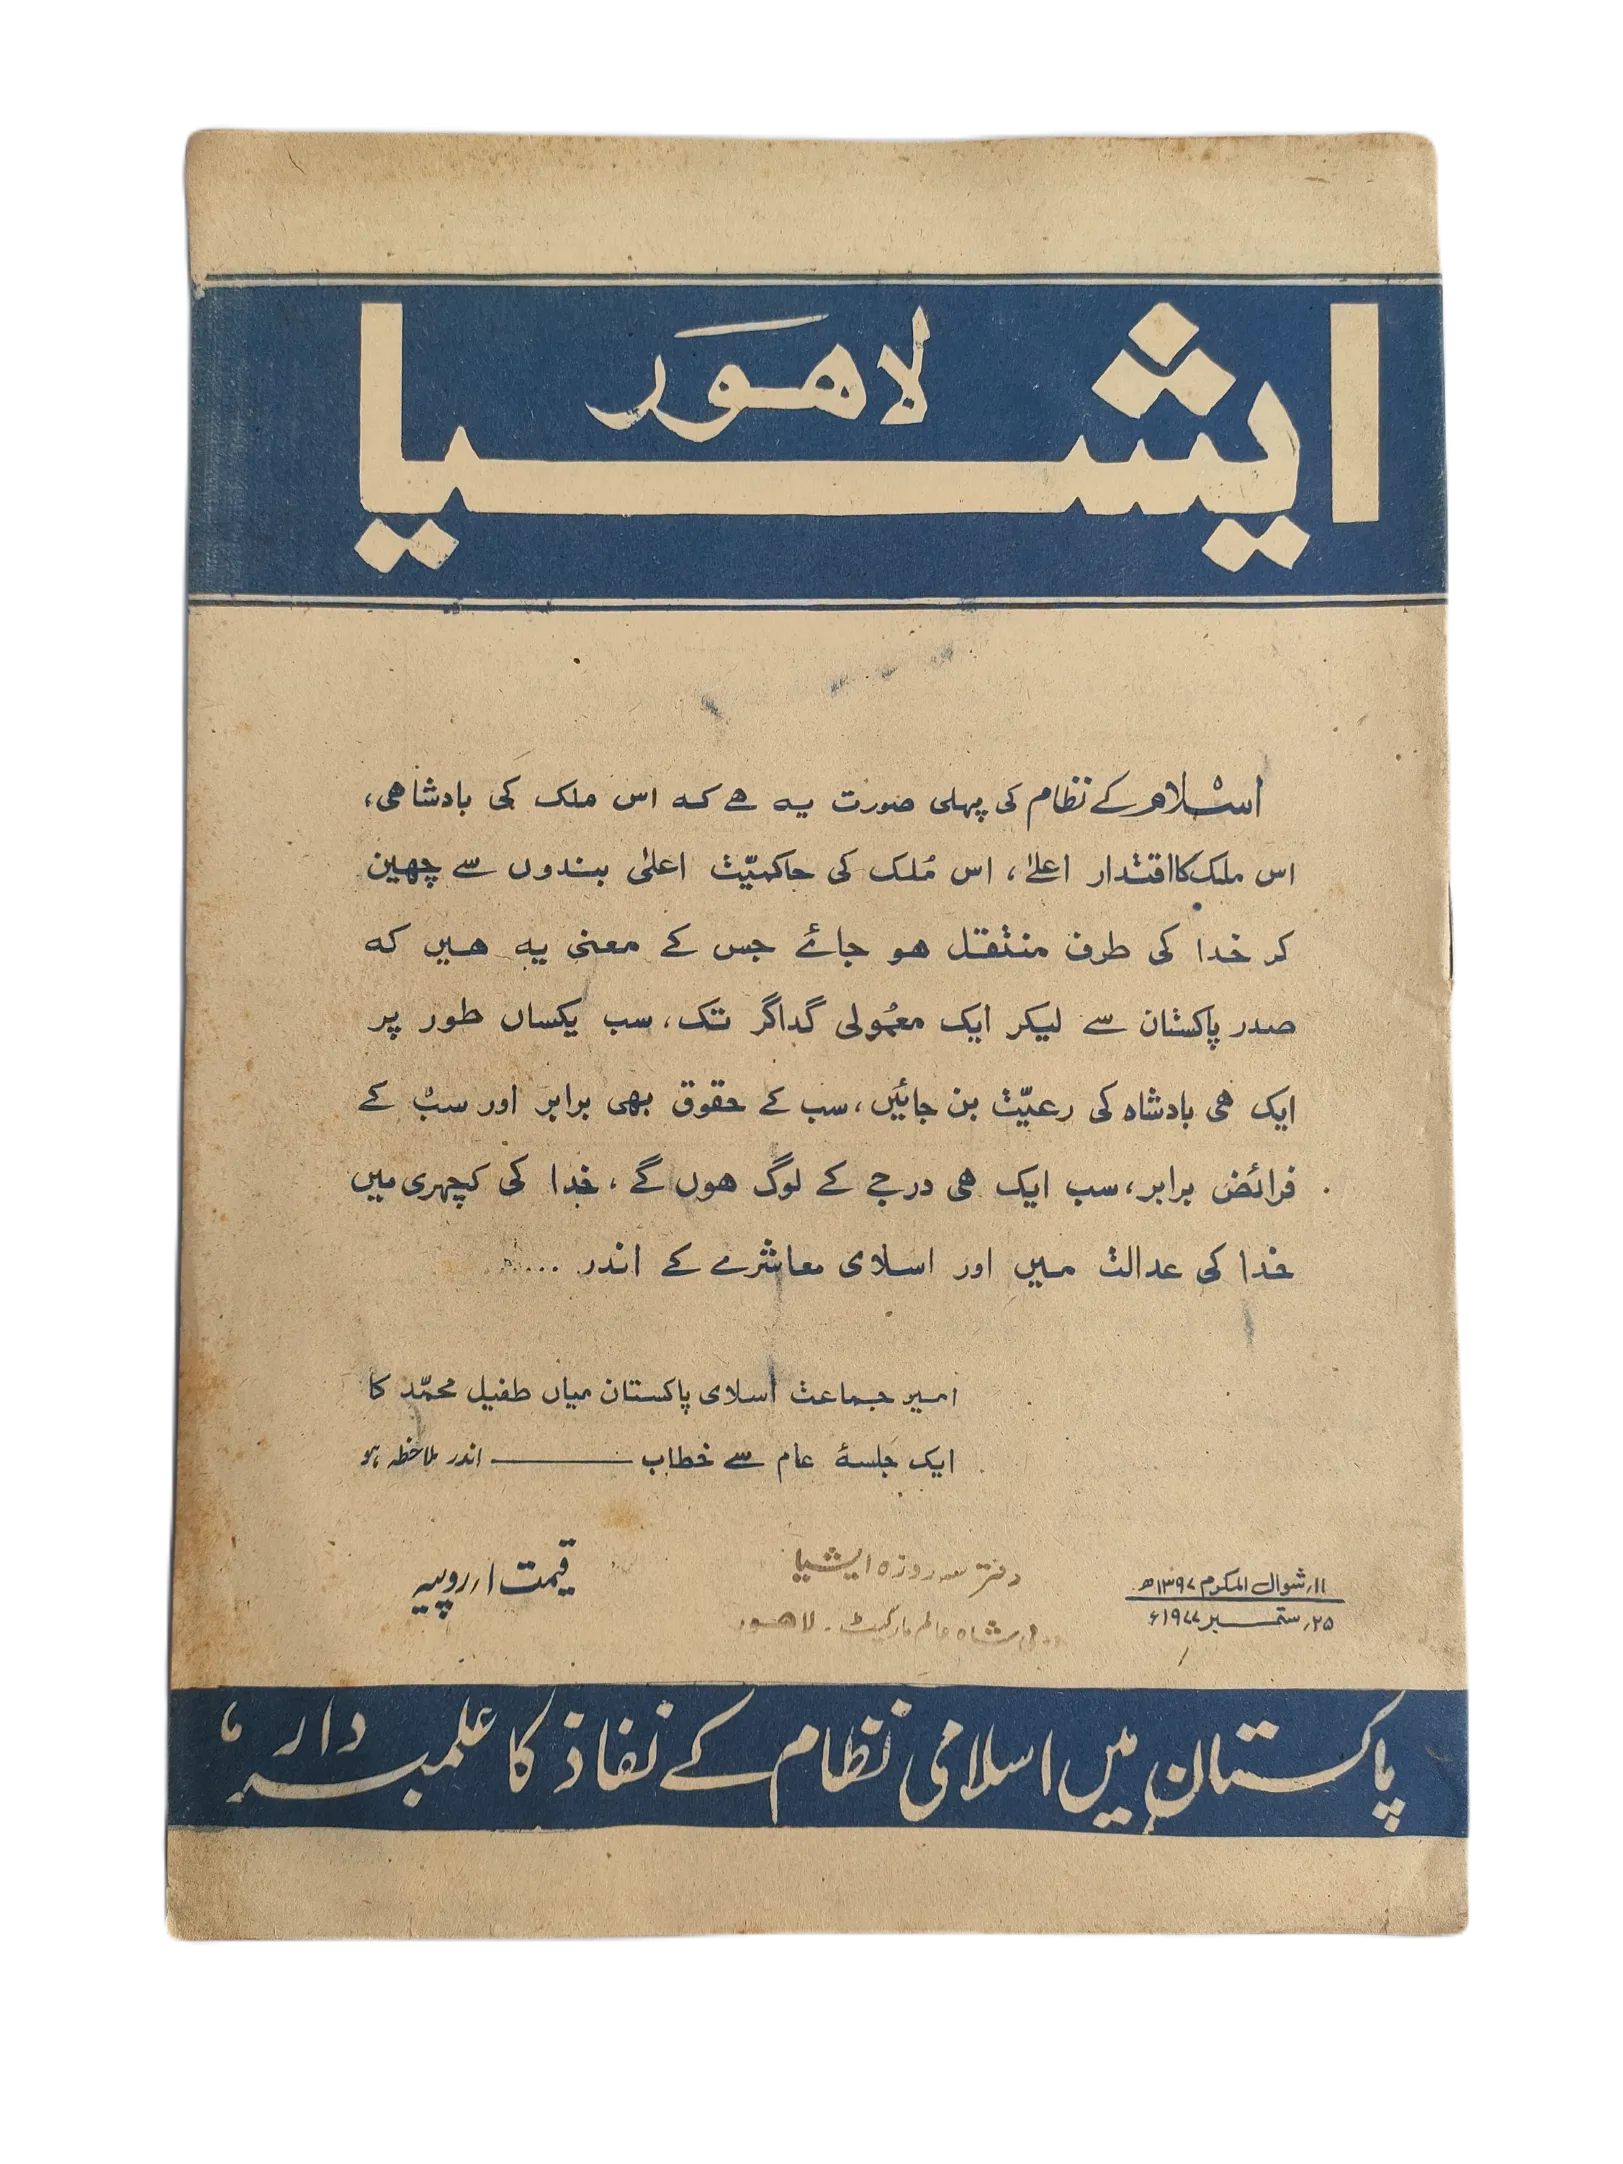 ایشیا
لاھور
اسلام کے نظام کی پہلی صورت یہ ھے کہ اس ملک کی بادشاھی،
اس ملک کا اقتدار اعلےٰ، اس مُلک کی حاکمیّت اعلیٰ بندوں سے چھین
کر خدا کی طرف منتقل ھو جائے جس کے معنی یہ ھیں کہ
صدر پاکستان سے لیکر ایک معمُولی گداگر تک، سب یکساں طور پر
ایک ھی بادشاہ کی رعیّت بن جائیں، سب کے حقوق بھی برابر اور سب کے
فرائض برابر، سب ایک ھی درجے کے لوگ ھوں گے، خدا کی کچہری میں
خدا کی عدالت میں اور اسلامی معاشرے کے اندر .....
امیر جماعت اسلامی پاکستان میاں طفیل محمّد کا
ایک جلسۂ عام سے خطاب ـــــــــ اندر ملاحظہ ہو
۱۱؍ شوال المکرم ۱۳۹۷ھ
۲۵؍ ستمبر ۱۹۷۷ء
دفتر سہ روزہ ایشیا
شاہ عالم مارکیٹ ۔ لاھور
قیمت ۱؍ روپیہ
پاکستان میں اسلامی نظام کے نفاذ کا علمبردار،